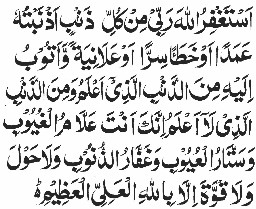 اَسْتَغْفِرُ اللهَ رَبِّىْ مِنْ كُلِّ ذَنْۢبٍ اَذْنَبْتُهٗ
عَمَدًا اَوْ خَطَأً سِرًّا اَوْ عَلَانِيَةً وَّاَتُوْبُ
اِلَيْهِ مِنَ الذَّنْۢبِ الَّذِىْٓ اَعْلَمُ وَمِنَ الذَّنْۢبِ
الَّذِىْ لَآ اَعْلَمُ اِنَّكَ اَنْتَ عَلَّامُ الْغُيُوْبِ
وَسَتَّارُ الْعُيُوْبِ وَغَفَّارُ الذُّنُوْبِ وَلَا حَوْلَ
وَلَا قُوَّةَ اِلَّا بِاللهِ الْعَلِىِّ الْعَظِيْمِ